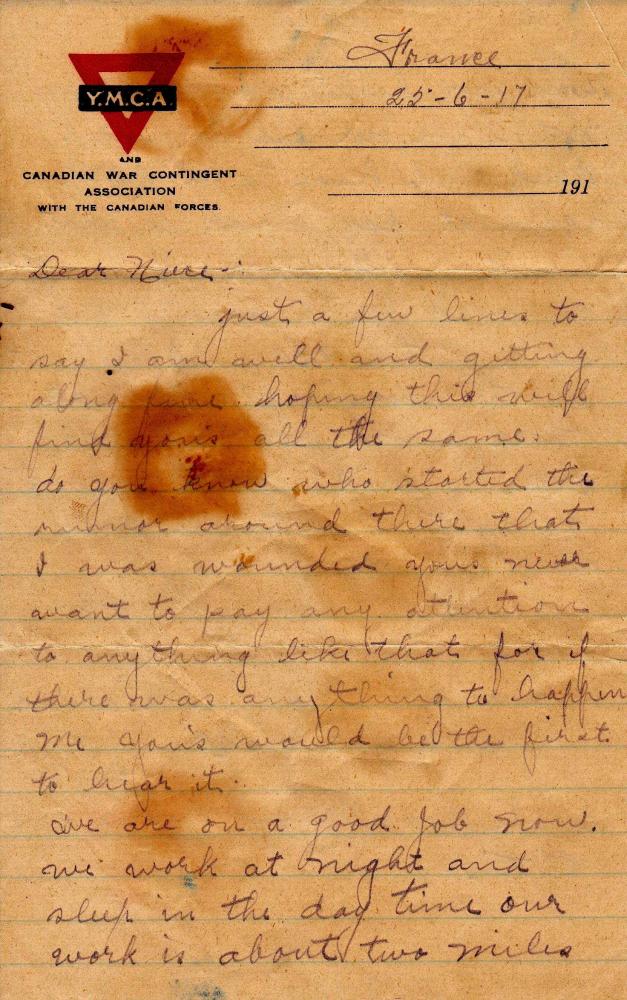 France
Y.M.C.A.
25-6-17
AND
CANADIAN WAR CONTINGENT
ASSOCIATION
191
WITH THE CANADIAN FORCES.
Dear Niece-:
just a few lines to
say I am well and getting
along fine hoping this will
find yous all the same.
do you know who started the
rumor around there that
I was wounded yous never
want to pay any attention
to anything like that for if
there was any thing to happen
me yous would be the first
to hear it.
we are on a good job now.
we work at night and
sleep in the day time our
work is about two miles